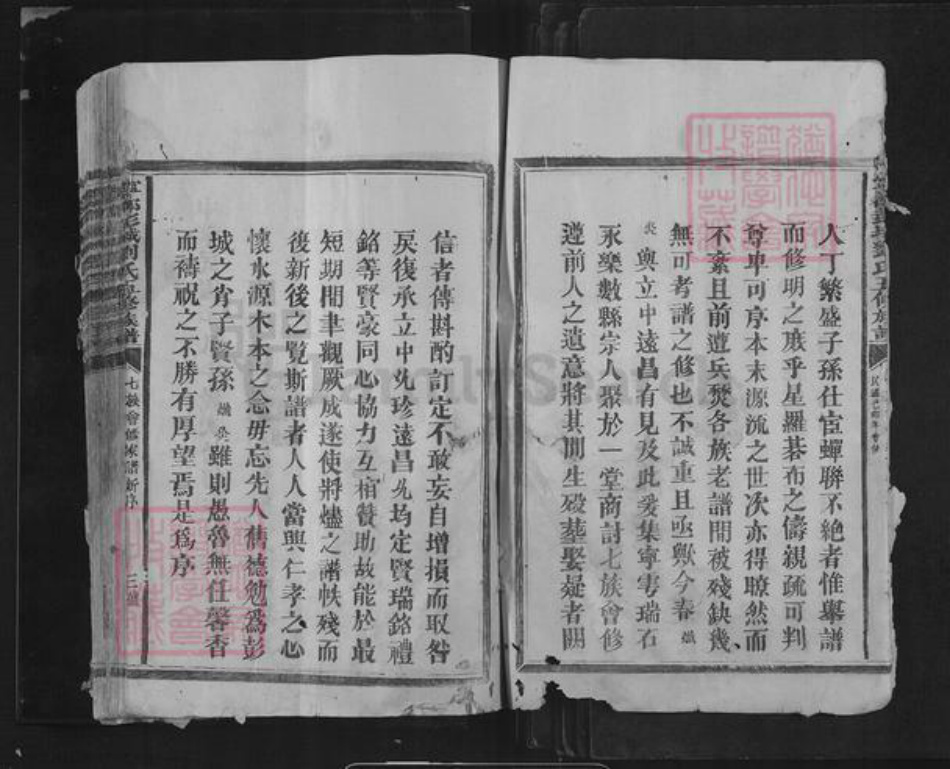 人丁繁盛子孫仕宦蟬聯不絕者惟舉譜
而修明之庶乎星羅碁布之儔親疏可判
尊卑可序本末源流之世次亦得瞭然而
不紊且前遭兵燹各族老譜間被殘缺幾
無可考譜之修也不誠重且亟歟今春
與立中遠昌有見及此爰集寧雩瑞石
永樂數縣宗人聚於一堂商討七族會修
遵前人之遺意將其間生歿墓娶疑者闕
信者傳斟酌訂定不敢妄自增損而取咎
戾復承立中珍遠昌均定賢瑞銘禮
銘等賢豪同心協力互相贊助故能於最
短期間聿觀厥成遂使將燼之譜帙殘而
後新後之覽斯譜者人人當興仁孝之心
懷水源木本之念毋忘先人舊德勉為彭
城之肖子賢孫雖則愚魯無任馨香
而禱祝之不勝有厚望焉是為序
七族會修家譜新序